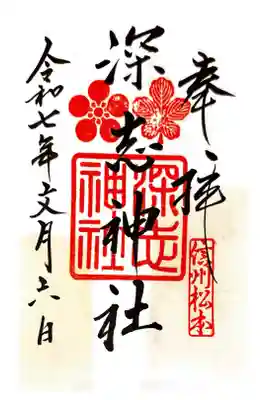 奉拝
信州松本
深志神社
深志神社
令和七年文月六日